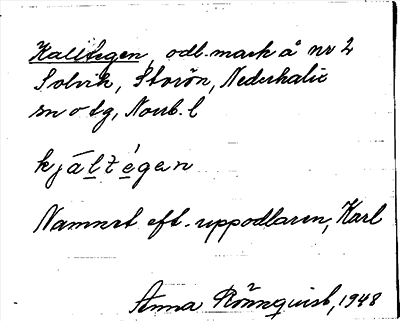 Kalltegen, odl. mark å nr 2
Solvik, Storön, Nederkalix
sn o tg, Norrb. l
kjáltégan
Namnet eft. uppodlaren, Karl
Anna Rönnquist, 1948